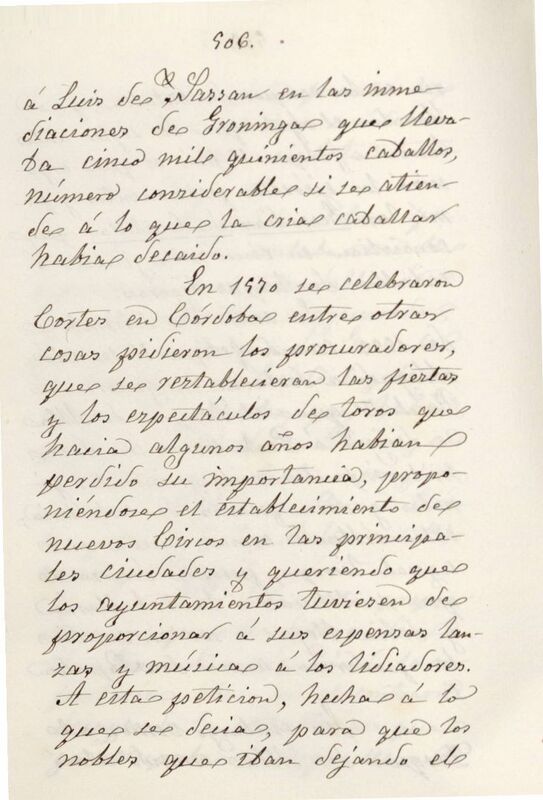 506.
á Luis de Nassau en las inme
diaciones de Groninga que lleva-
ba cinco mil quinientos caballos,
número considerable si se atien-
de á lo que la cria caballar
habia decaido.
En 1570 se celebraron
Cortes en Córdoba entre otras
cosas pidieron los procuradores,
que se restablecieran las fiestas
y los espectáculos de toros que
hacia algunos años habian
perdido su importancia, propo-
niéndose el establecimiento de
nuevos Circos en las principa-
les ciudades y queriendo que
los ayuntamientos tuviesen de
proporcionar á sus espensas lan-
zas y música á los lidiadores.
A esta peticion, hecha á lo
que se decia, para que los
nobles que iban dejando el